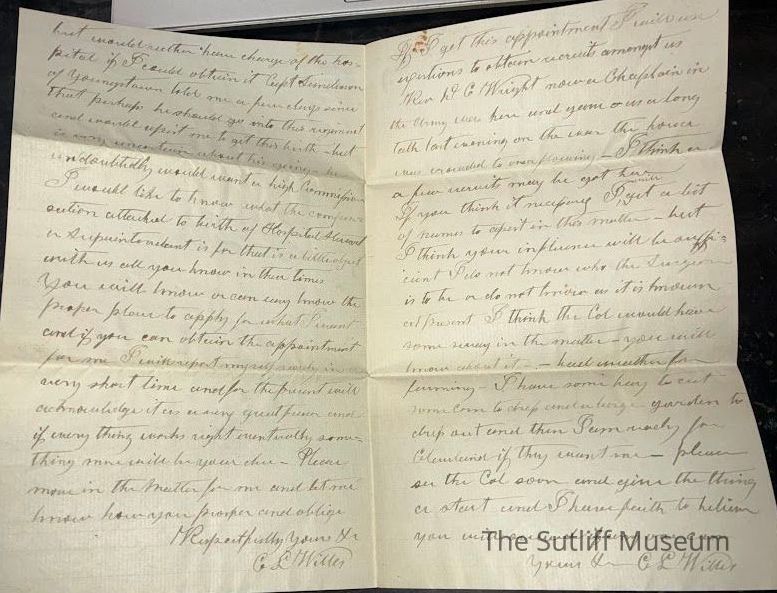 but would rather have charge of the hos-
pital if I could obtain it Capt
of Youngstown told me a few days since
that perhaps he should go into this regiment
and would assist me to get this birth - but
is very uncertain about his going - he
undoubtedly would want a high Commission
I would like to know what the compen-
sation attached to birth of Hospital Steward
or is for that is a little object
with us all you know in these times
You will know or can easy know the
proper place to apply for what I want
and if you can obtain the appointment
for me I will report myself ready in a
very short time and for the present will
acknowledge it as a very great favor and
if every thing works right eventually some-
thing more will be your due - Please
move in the matter for me and let me
know how you prosper and oblige
Respectfully Yours &c
C L Wilter
If I get this appointment I will use
exertions to obtain recruits amongst us
Rev D C Wright now a Chaplain in
the Army was here and gave us a long
talk last evening on the war the house
was crowded to overflowing - I think
a few recruits may be got here
If you think it necessary I will get a list
of names to assist in this matter - but
I think your influence will be suffi-
cient I do not know who the Surgeon
is to be or do not know as it is known
at present I think the Col would have
some say in the matter - you will
know about it - bad weather for
farming - I have some hay to cut
some corn to and a large garden to
out and then I am ready for
and if they want me - please
see the Col soon and give the thing
a start and I have faith to believe
you will
Yours &c C L Wilter
The Sutliff Museum